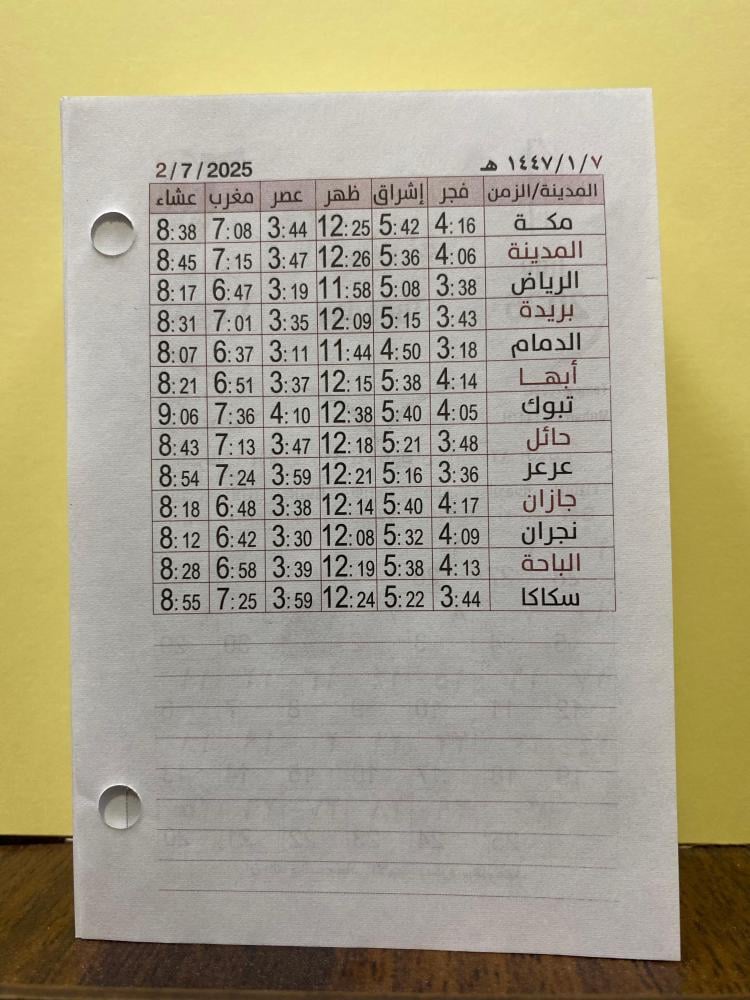 ١٤٤٧/١/٧ هـ 2/7/2025
المدينة/الزمن فجر إشراق ظهر عصر مغرب عشاء
مكـــة 4:16 5:42 12:25 3:44 7:08 8:38
المدينة 4:06 5:36 12:26 3:47 7:15 8:45
الرياض 3:38 5:08 11:58 3:19 6:47 8:17
بريدة 3:43 5:15 12:09 3:35 7:01 8:31
الدمام 3:18 4:50 11:44 3:11 6:37 8:07
أبهـــا 4:14 5:38 12:15 3:37 6:51 8:21
تبوك 4:05 5:40 12:38 4:10 7:36 9:06
حائل 3:48 5:21 12:18 3:47 7:13 8:43
عرعر 3:36 5:16 12:21 3:59 7:24 8:54
جازان 4:17 5:40 12:14 3:38 6:48 8:18
نجران 4:09 5:32 12:08 3:30 6:42 8:12
الباحة 4:13 5:38 12:19 3:39 6:58 8:28
سكاكا 3:44 5:22 12:24 3:59 7:25 8:55